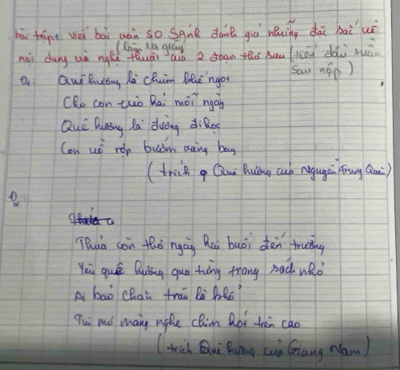 bài tập: viết bài văn SO SÁNH đánh giá những đặc sắc về
(làm ra giấy)
nội dung và nghệ thuật của 2 đoạn thơ sau (tiết đầu tuần
sau nộp)
Đ1: Quê hương là chùm khế ngọt
Cho con trèo hái mỗi ngày
Quê hương là đường đi học
Con về rợp bướm vàng bay
(trích Quê hương của Nguyễn Trung Quân)
Đ2
Thuở còn thơ ngày hai buổi đến trường
Yêu quê hương qua từng trang sách nhỏ
Ai bảo chăn trâu là khổ
Tui mơ màng nghe chim hót trên cao
(trích Quê hương của Giang Nam)